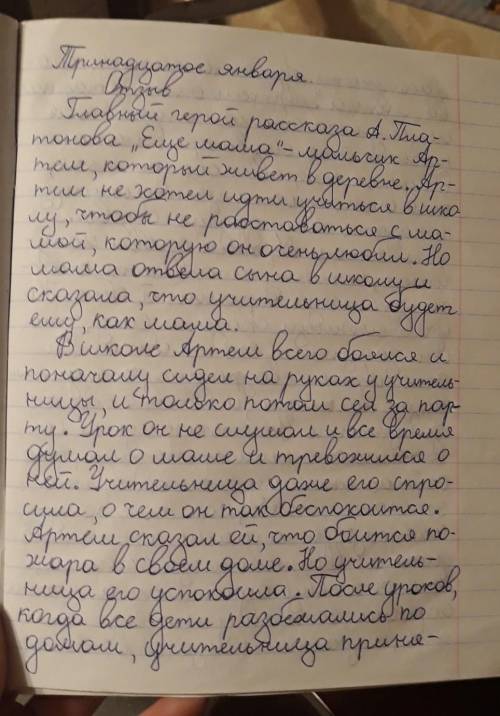 Тринадцатое января.
Отзыв
Главный герой рассказа А. Пла-
тонова „Еще мама“ – мальчик Ар-
тем, который живет в деревне. Ар-
тем не хотел идти учиться в шко
лу, чтобы не расставаться с ма-
мой, которую он очень любил. Но
мама отвела сына в школу и
сказала, что учительница будет
ему, как мама.
В школе Артем всего боялся и
поначалу сидел на руках у учитель-
ницы, и только потом сел за пар-
ту. Урок он не слушал и все время
думал о маме и тревожился о
ней. Учительница даже его спро-
сила, о чем он так беспокоится.
Артем сказал ей, что боится по-
жара в своем доме. Но учитель-
ница его успокоила. После уроков,
когда все дети разбежались по
домам, учительница приня-